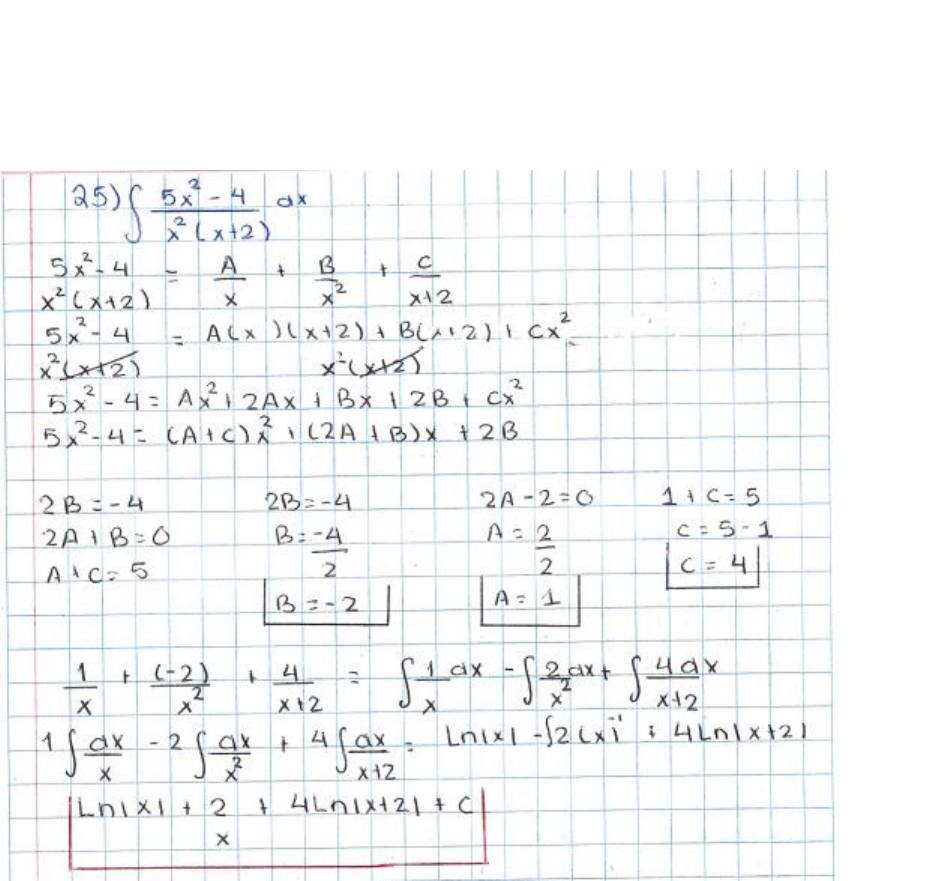 25) ∫ (5x² - 4)/(x²(x+2)) dx
(5x² - 4)/(x²(x+2)) = A/x + B/x² + C/(x+2)
(5x² - 4)/(x²(x+2)) = (A(x)(x+2) + B(x+2) + Cx²)/(x²(x+2))
5x² - 4 = Ax² + 2Ax + Bx + 2B + Cx²
5x² - 4 = (A+C)x² + (2A+B)x + 2B
2B = -4 2B = -4 2A - 2 = 0 1 + C = 5
2A + B = 0 B = -4/2 A = 2/2 C = 5 - 1
A + C = 5 B = -2 A = 1 C = 4
1/x + (-2)/x² + 4/(x+2) = ∫ 1/x dx - ∫ 2/x² dx + ∫ 4dx/(x+2)
1 ∫ dx/x - 2 ∫ dx/x² + 4 ∫ dx/(x+2) = Ln|x| - ∫2(x)⁻¹ + 4Ln|x+2|
Ln|x| + 2/x + 4Ln|x+2| + C